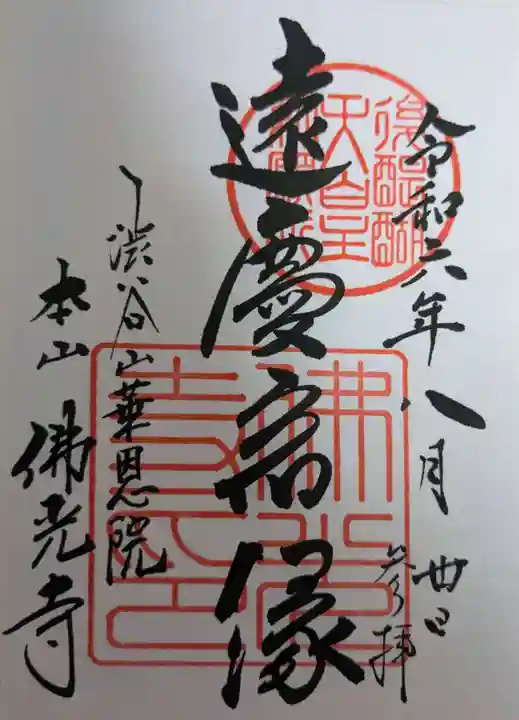 令和六年八月廿日
参拝
遠慶宿縁
渋谷山華恩院
本山佛光寺
後醍醐
天皇